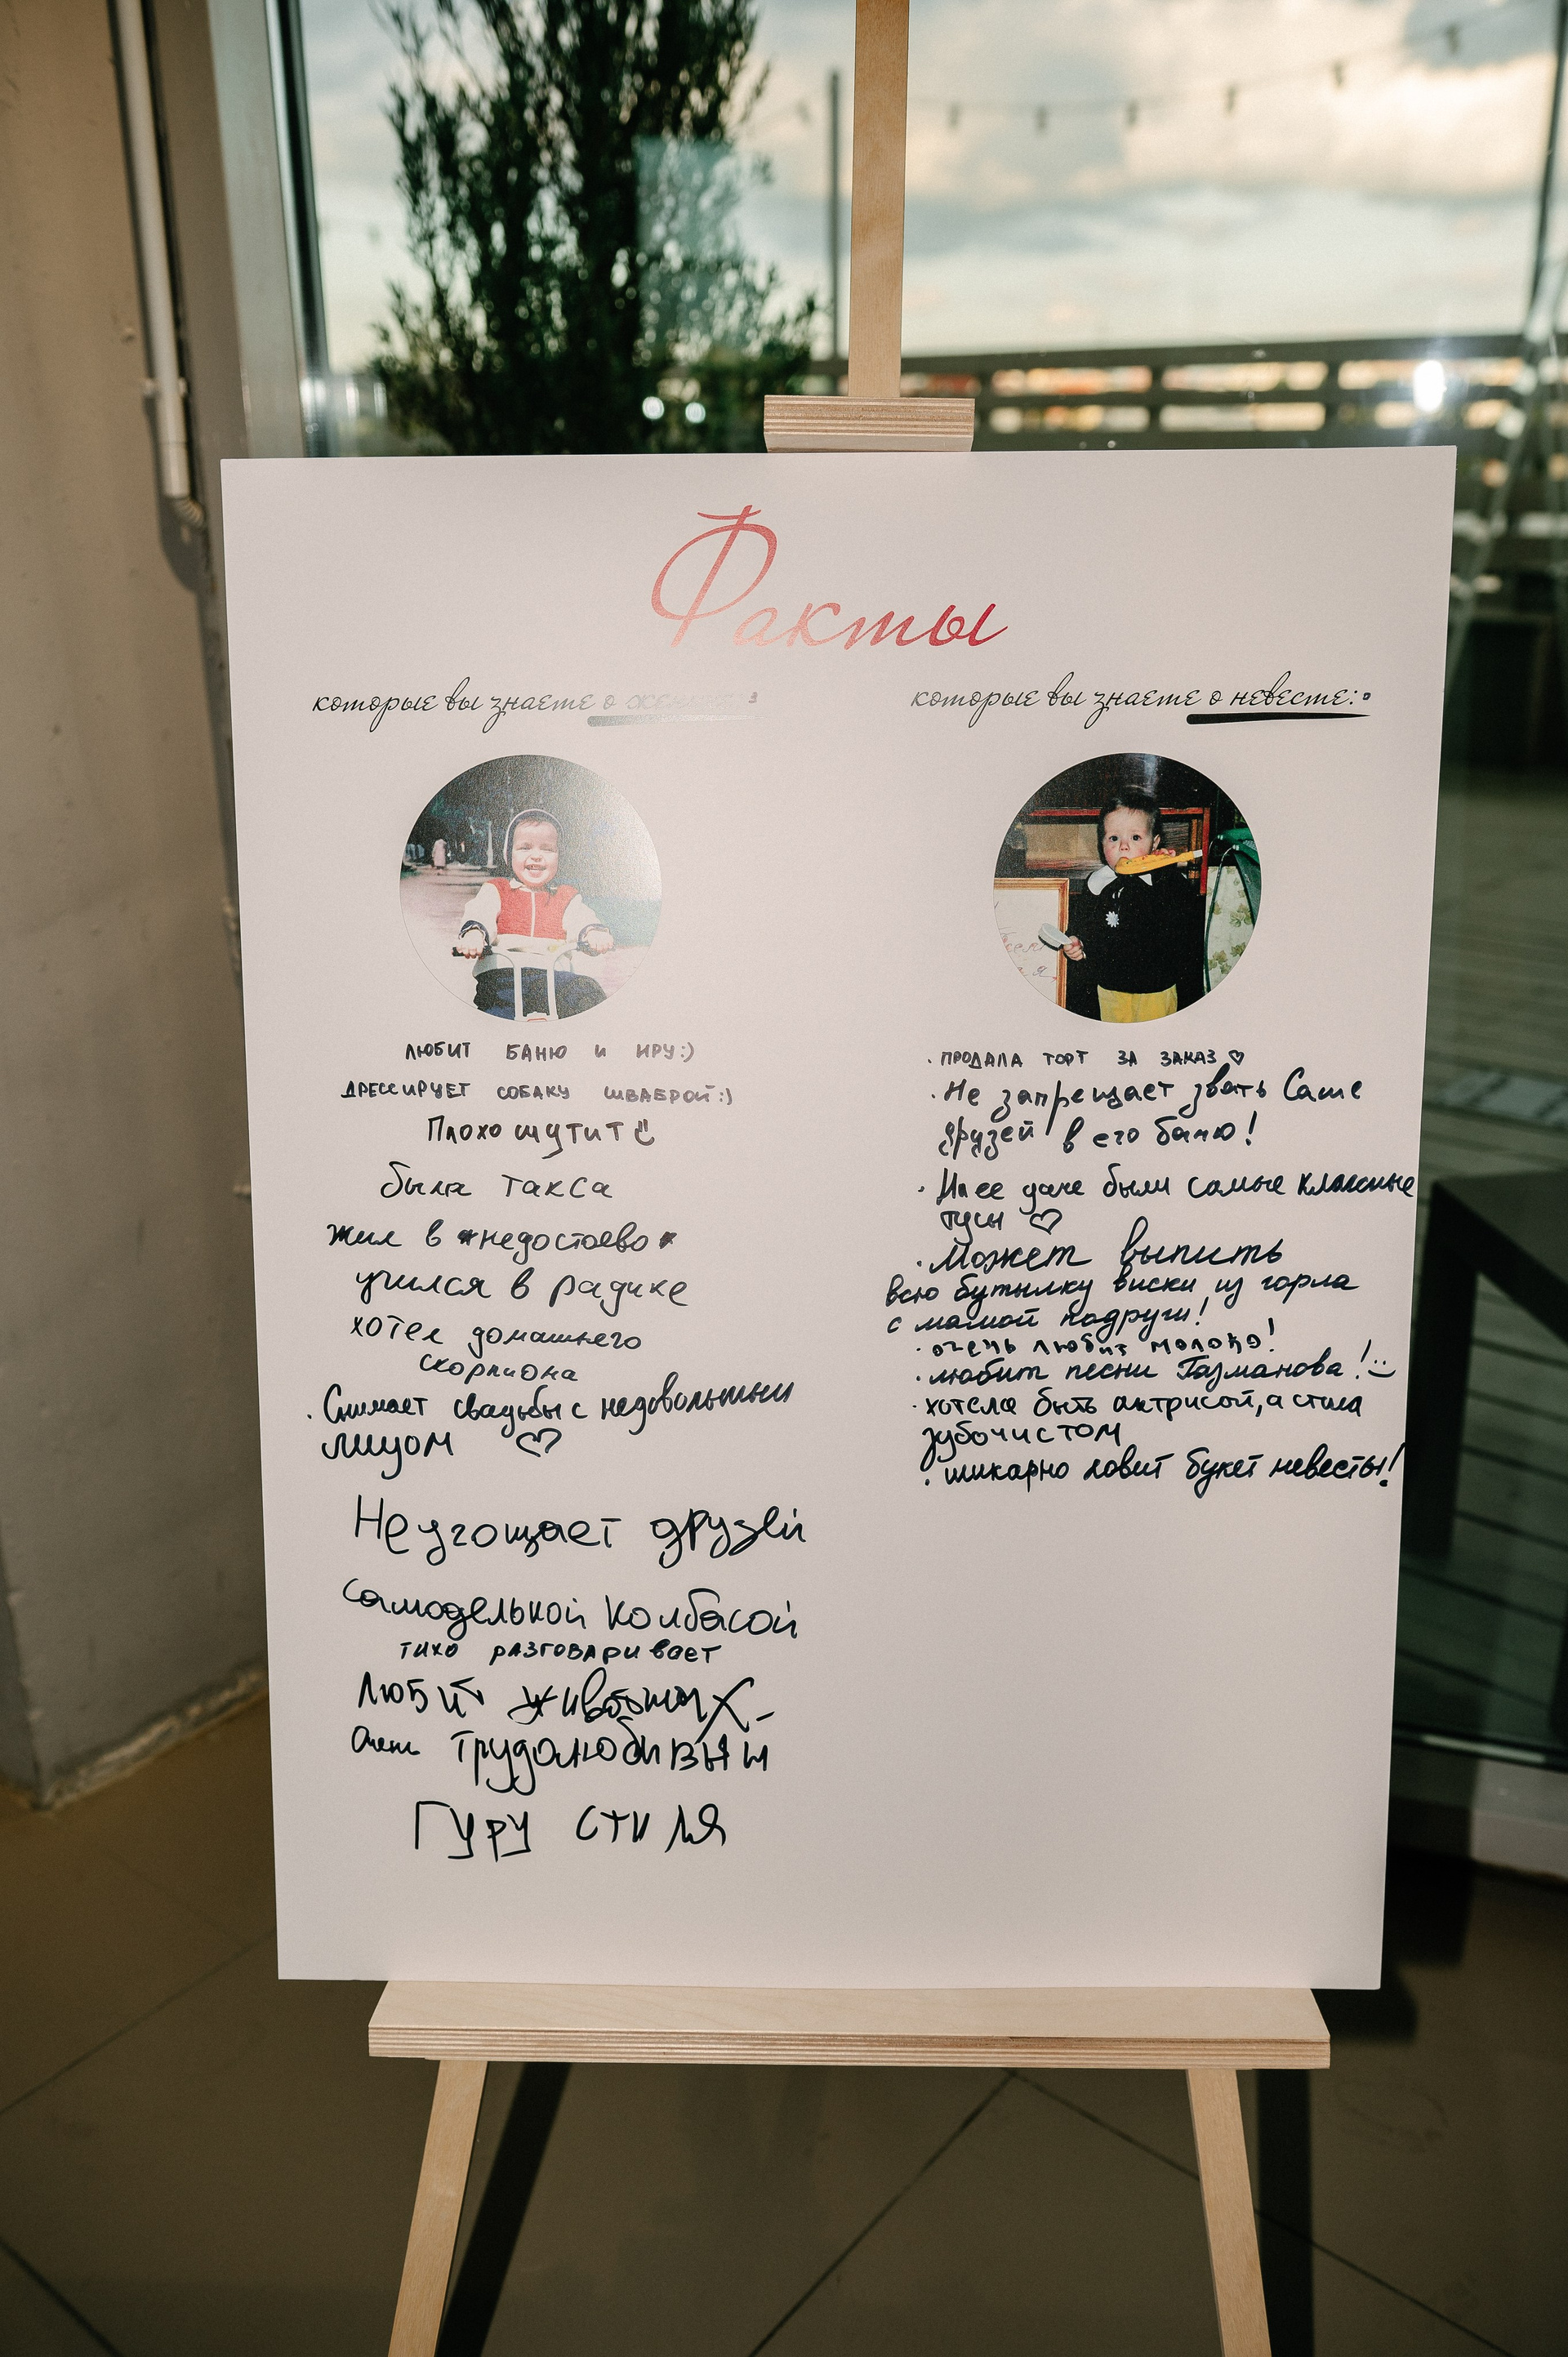 Факты
которые вы знаете о женихе:
любит баню и Иру:)
дрессирует собаку шваброй:)
Плохо шутит
была такса
жил в *недостоево*
учился в радике
хотел домашнего
скорпиона
. Снимает свадьбы с недовольным
лицом ♡
Не угощает друзей
самодельной колбасой
тихо разговаривает
любит животных
Очень трудолюбивый
Гуру стиля
которые вы знаете о невесте:
. продала торт за заказ ♡
. Не запрещает звать Саше
друзей в его баню!
. На ее даче были самые классные
тусы ♡
. Может выпить
всю бутылку виски из горла
с мамой подруги!
. очень любит молоко!
. любит песни Газманова!
. хотела быть актрисой, а стала
зубочистом
. шикарно ловит букет невесты!